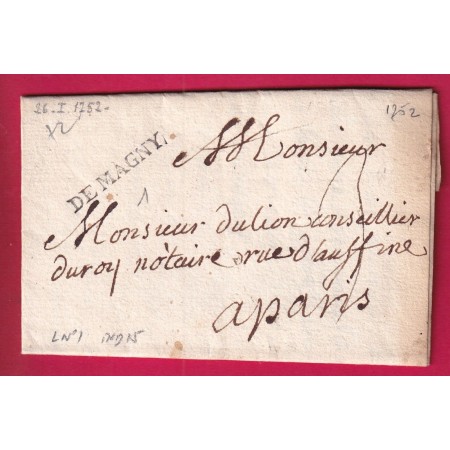 26-I-1752-
1752
x2
DE MAGNY
A Monsieur
1
Monsieur dulion conseillier
du roy nôtaire rue d'auffine
a paris
LN°1 IND 15